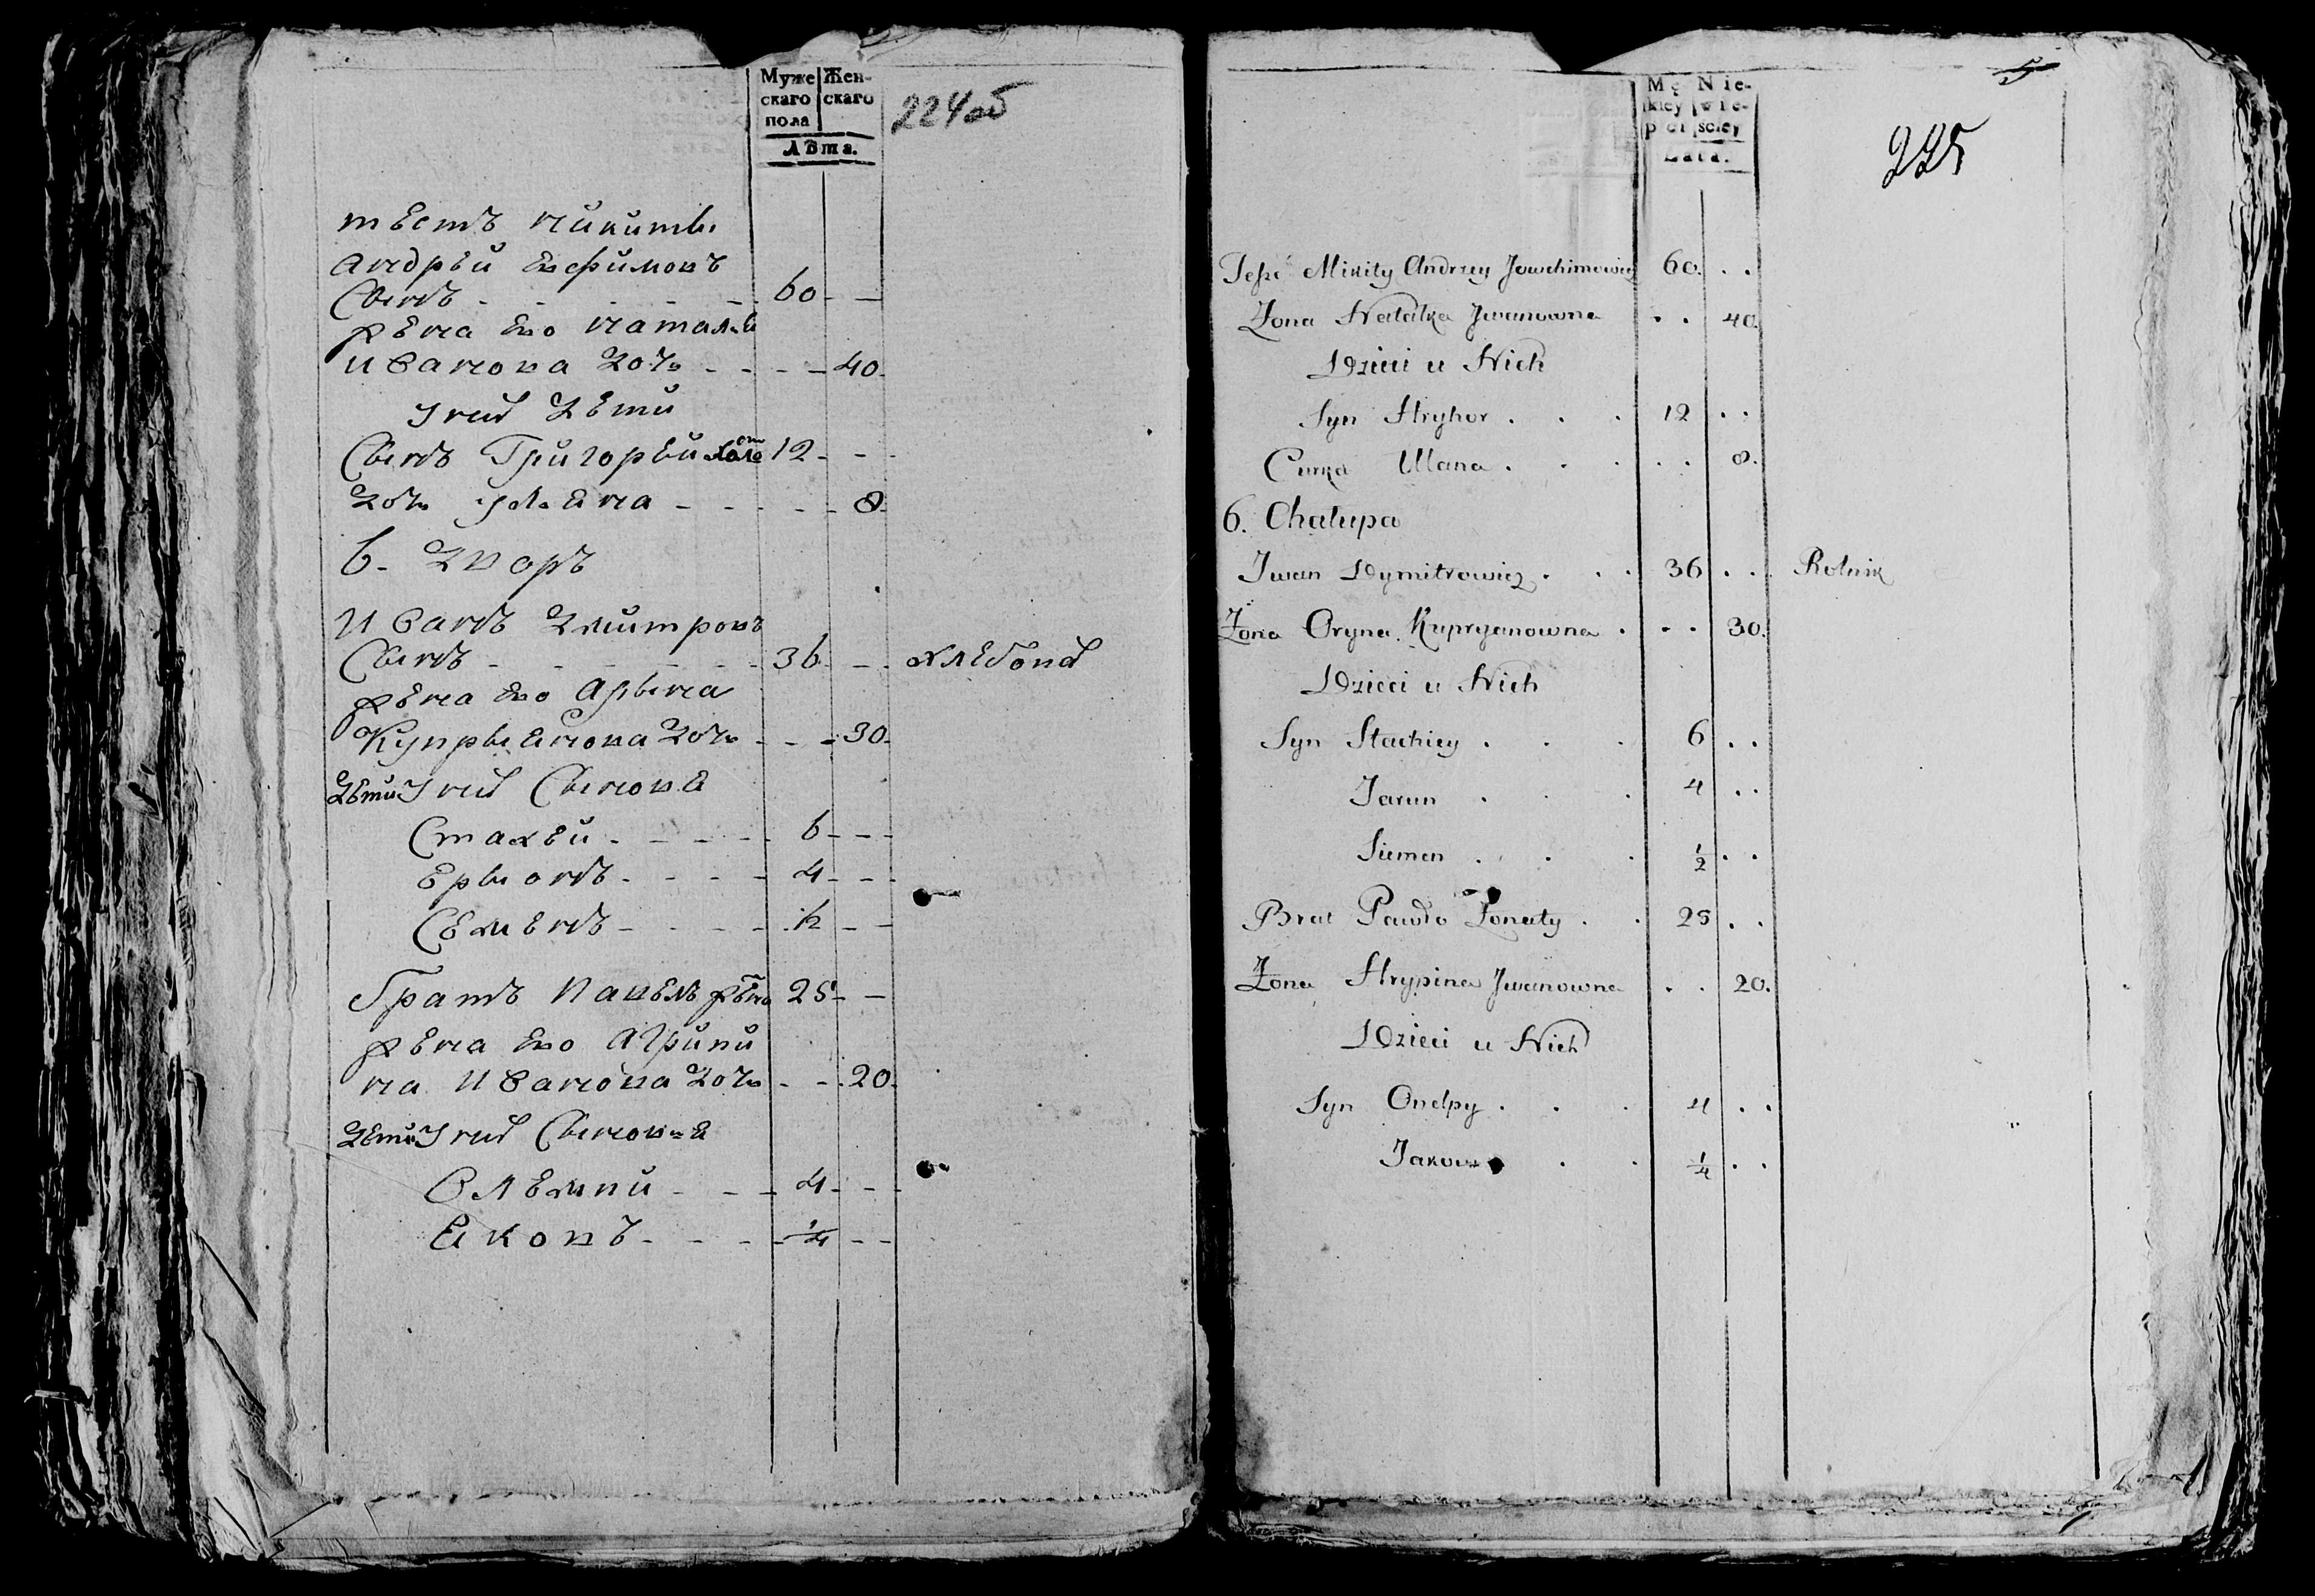 Муже Жен-
скаго скаго
пола
Лѣта.
224об
тесть никиты
андрѣй евфимовъ
Сынъ - - - - - - 60 - -
жена Ево наталья
Иванова дочь - - - - 40
У них дети
Сынъ Григорѣй холост 12 - -
дочь ульяна - - - - - 8
6. дворъ
Иванъ дмитровъ
Сынъ - - - - - - 36 - - хлебопа
жена Ево арына
Купрыянова дочь - - - 30
дети У них Сыновья
Стахей - - - - 6 - - -
Ерыонъ - - - - 4 - - -
Семенъ - - - - ½ - -
братъ павелъ жена 25 - -
жена Ево агрипи
на Иванова дочь - - - 20
дети У них Сыновья
Олемпи - - - 4 - - -
Яковъ - - - - ¼ - -
5
Mę Nie-
zkiey wie-
pci sciey
Lata.
225
Teść Mikity Andrzey Jowchimowicz 60. . .
Żona Natalka Jwanowna . . 40.
Dzieci u Nich
Syn Hryhor . . . 12 . .
Curka Ulana . . . . . 8.
6. Chałupa
Jwan Dymitrowicz . . . 36 . . Rolnik
Żona Oryna Kupryanowna . . . 30.
Dzieci u Nich
Syn Stachiey . . . 6 . .
Jarun . . . 4 . .
Siemen . . . ½ . .
Brat Pawło Żonaty . . 25 . .
Żona Hrypina Jwanowna . . 20.
Dzieci u Nich
Syn Onelpy . . . 4 . .
Jakow . . ¼ . .